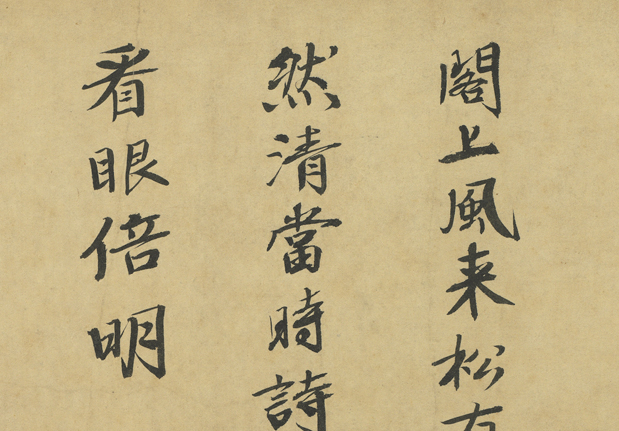 閣上風来松
然清當時詩
看眼倍明